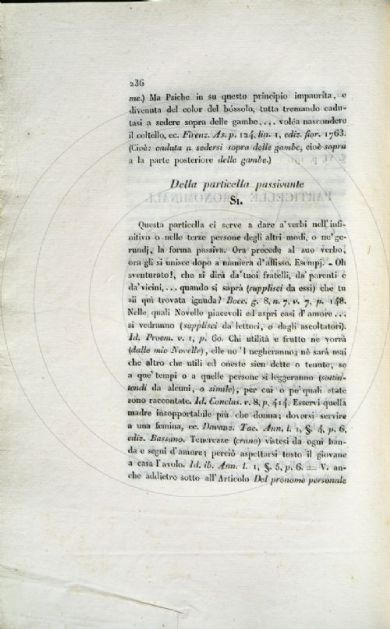 236
me.) Ma Psiche in su questo principio impaurita, e
divenuta del color del bóssolo, tutta tremando cadu-
tasi a sedere sopra delle gambe... voléa nascondere
il coltello, ec. Firenz. As. p. 124, lin. 1, ediz. fior. 1763.
(Cioè: caduta a sedersi sopra delle gambe, cioè sopra
a la parte posteriore delle gambe.)
Della particella passivante
Si.
Questa particella ci serve a dare a' verbi nell'infi-
nitivo o nelle terze persone degli altri modi, o ne' ge-
rundj, la forma passiva. Ora precede al suo verbo,
ora gli si unisce dopo a maniera d'affisso. Esempj. - Oh
sventurato!, che si dirà da' tuoi fratelli, da' parenti e
da' vicini,... quando si saprà (supplisci da essi) che tu
sii quì trovata ignuda? Bocc. g. 8, n. 7, v. 7, p. 148.
Nelle quali Novelle piacevoli ed aspri casi d'amore...
si vedranno (supplisci da' lettori, o dagli ascoltatori).
Id. Proem. v. 1, p. 60. Chi utilità e frutto ne vorrà
(dalle mie Novelle), elle no 'l negheranno; nè sarà mai
che altro che utili ed oneste sien dette o tenute, se
a que' tempi o a quelle persone si leggeranno (sottin-
tendi da alcuni, o simile), per cui o pe' quali state
sono raccontate. Id. Conclus. v. 8, p. 414. Esservi quella
madre insopportabile più che donna; doversi servire
a una femina, ec. Davanz. Tac. Ann. l. 1, §. 4, p. 6,
ediz. Bassano. Tenerezze (erano) vistesi da ogni ban-
da e segni d'amore; perciò aspettarsi tosto il giovane
a casa l'avolo. Id. ib. Ann. l. 1, §. 5, p. 6. = V. an-
che addietro sotto all'Articolo Del pronome personale